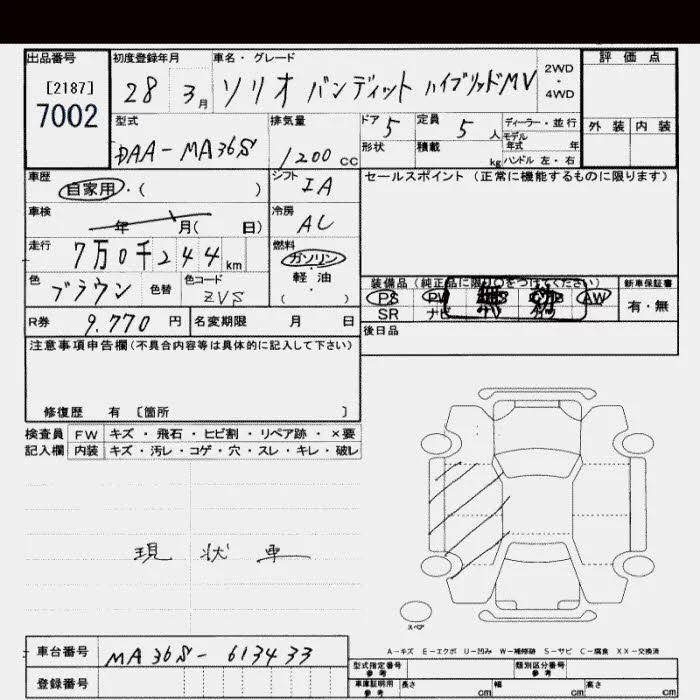 出品番号 初度登録年月 車名・グレード 評価点
[2187] 28 3月 ソリオ バンディット ハイブリッドMV 2WD・4WD
7002 外装 内装
型式 排気量 ドア 定員 ディーラー・並行
DAA-MA36S 1200cc 5 5人 モデル年式 年
形状 積載 kg ハンドル 左・右
車歴 自家用・( ) シフト IA セールスポイント(正常に機能するものに限ります)
車検 年 月( 日) 冷房 AC
走行 7万0千244km 燃料 ガソリン・軽油 ( )
色 ブラウン 色替 色コード ZVS
装備品(純正品に限り○をつけてください) 新車保証書
PS PW 無効 AW 有・無
SR ナビ
R券 9.770円 名変期限 月 日 後日品
注意事項申告欄(不具合内容等は具体的に記入して下さい)
修復歴 有 [箇所 ]
検査員 FW キズ・飛石・ヒビ割・リペア跡・×要
記入欄 内装 キズ・汚レ・コゲ・穴・スレ・キレ・破レ
現状車
スペア
A-キズ E-エクボ U-凹み W-補修跡 S-サビ C-腐食 XX-交換済
車台番号 MA36S-613433
型式指定番号 参考 類別区分番号 参考
登録番号
車庫証明用 参考 長さ cm 幅 cm 高さ cm